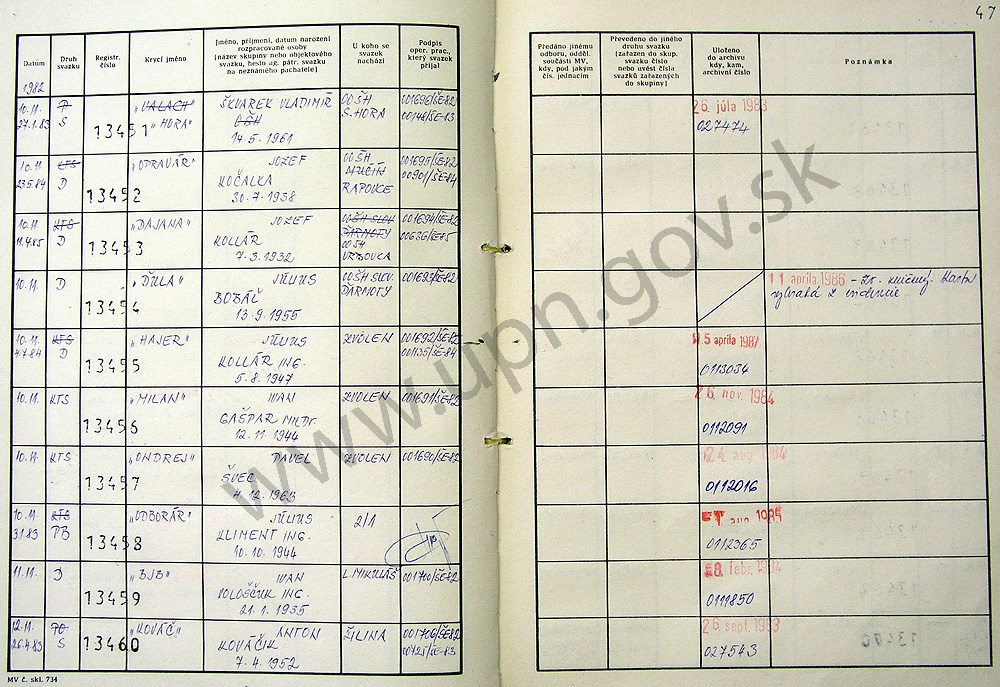 47
Datum
Druh svazku
Registr. číslo
Krycí jméno
Jméno, příjmení, datum narození
rozpracované osoby
(název skupiny nebo objektového
svazku, heslo ag. pátr. svazku
na neznámého pachatele)
U koho se
svazek
nachází
Podpis
oper. prac.,
který svazek
přijal
Předáno jinému
odboru, odděl.
součásti MV,
kdy, pod jakým
čís. jednacím
Převedeno do jiného
druhu svazku
(zařazen do skup.
svazku číslo
nebo uvést číslo
svazků zařazených
do skupiny)
Uloženo
do archivu
kdy, kam,
archivní číslo
Poznámka
1982
10.11. P "VALACH" ŠKVAREK VLADIMÍR OO ŠH 001696/ŠE-82 26. júla 1983
27.1.83 S 13451 "HORA" OŠH S. HORA 00146/ŠE-83 027474
14.5.1961
10.11. KTS "OPRAVÁR" JOZEF OOŠH 001695/ŠE-82
23.5.84 D 13452 KOČALKA RAPOVCE 00901/ŠE-84
30.7.1938
10.11. KTS "DAJANA" JOZEF OOŠH SLOV. DARMOTY 001694/ŠE-82
11.4.85 D 13453 KOLLÁR OOŠH VRBOVKA 00636/ŠE-85
7.3.1932
10.11. D "ĎULA" JÚLIUS OOŠH SLOV. DARMOTY 001693/ŠE-82 11 apríla 1986 - Zv. zničený. Karta
13454 BOBÁĽ vybratá z evidencie
13.9.1955
10.11. KTS "HAJER" JÚLIUS ZVOLEN 001692/ŠE-82 15 apríla 1987
4.7.84 D 13455 KOLLÁR ING. 001135/ŠE-84 0113034
5.8.1947
10.11. KTS "MILAN" IVAN ZVOLEN 001691/ŠE-82 26 nov. 1984
13456 GAŠPAR MUDr. 0112091
12.11.1944
10.11. KTS "ONDREJ" PAVEL ZVOLEN 001690/ŠE-82 24 aug 1984
13457 ŠVEC 0112016
4.12.1963
10.11. KTS "ODBORÁR" JÚLIUS 2/1
3.1.83 PB 13458 KLIMENT ING. 0112365
10.10.1944
11.11. D "BJB" IVAN L. MIKULÁŠ 001700/ŠE-82 febr. 1984
13459 VOLOŠČUK ING. 0111850
21.1.1935
12.11. PO "KOVÁČ" ANTON ŽILINA 001706/ŠE-82 26 sept. 1983
26.4.83 S 13460 KOVÁČIK 00725/ŠE-83 027543
7.4.1952
MV č. skl. 734
www.upn.gov.sk